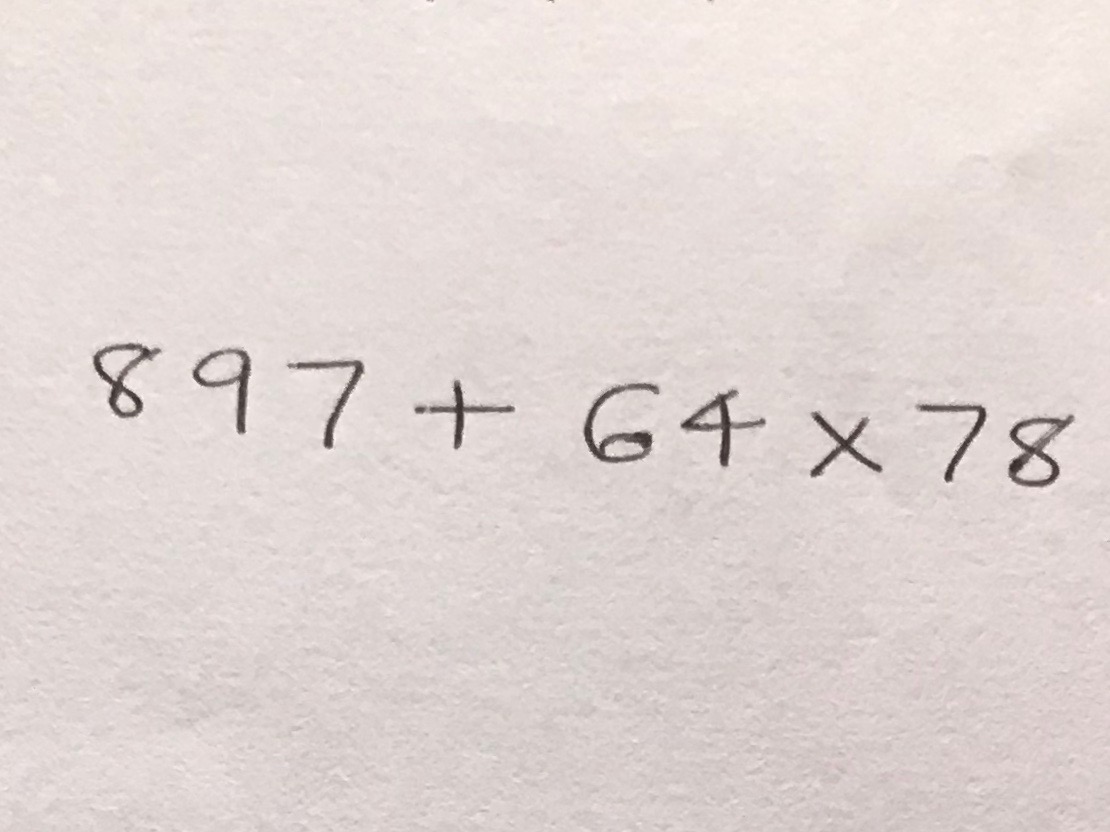 897 + 64 × 78